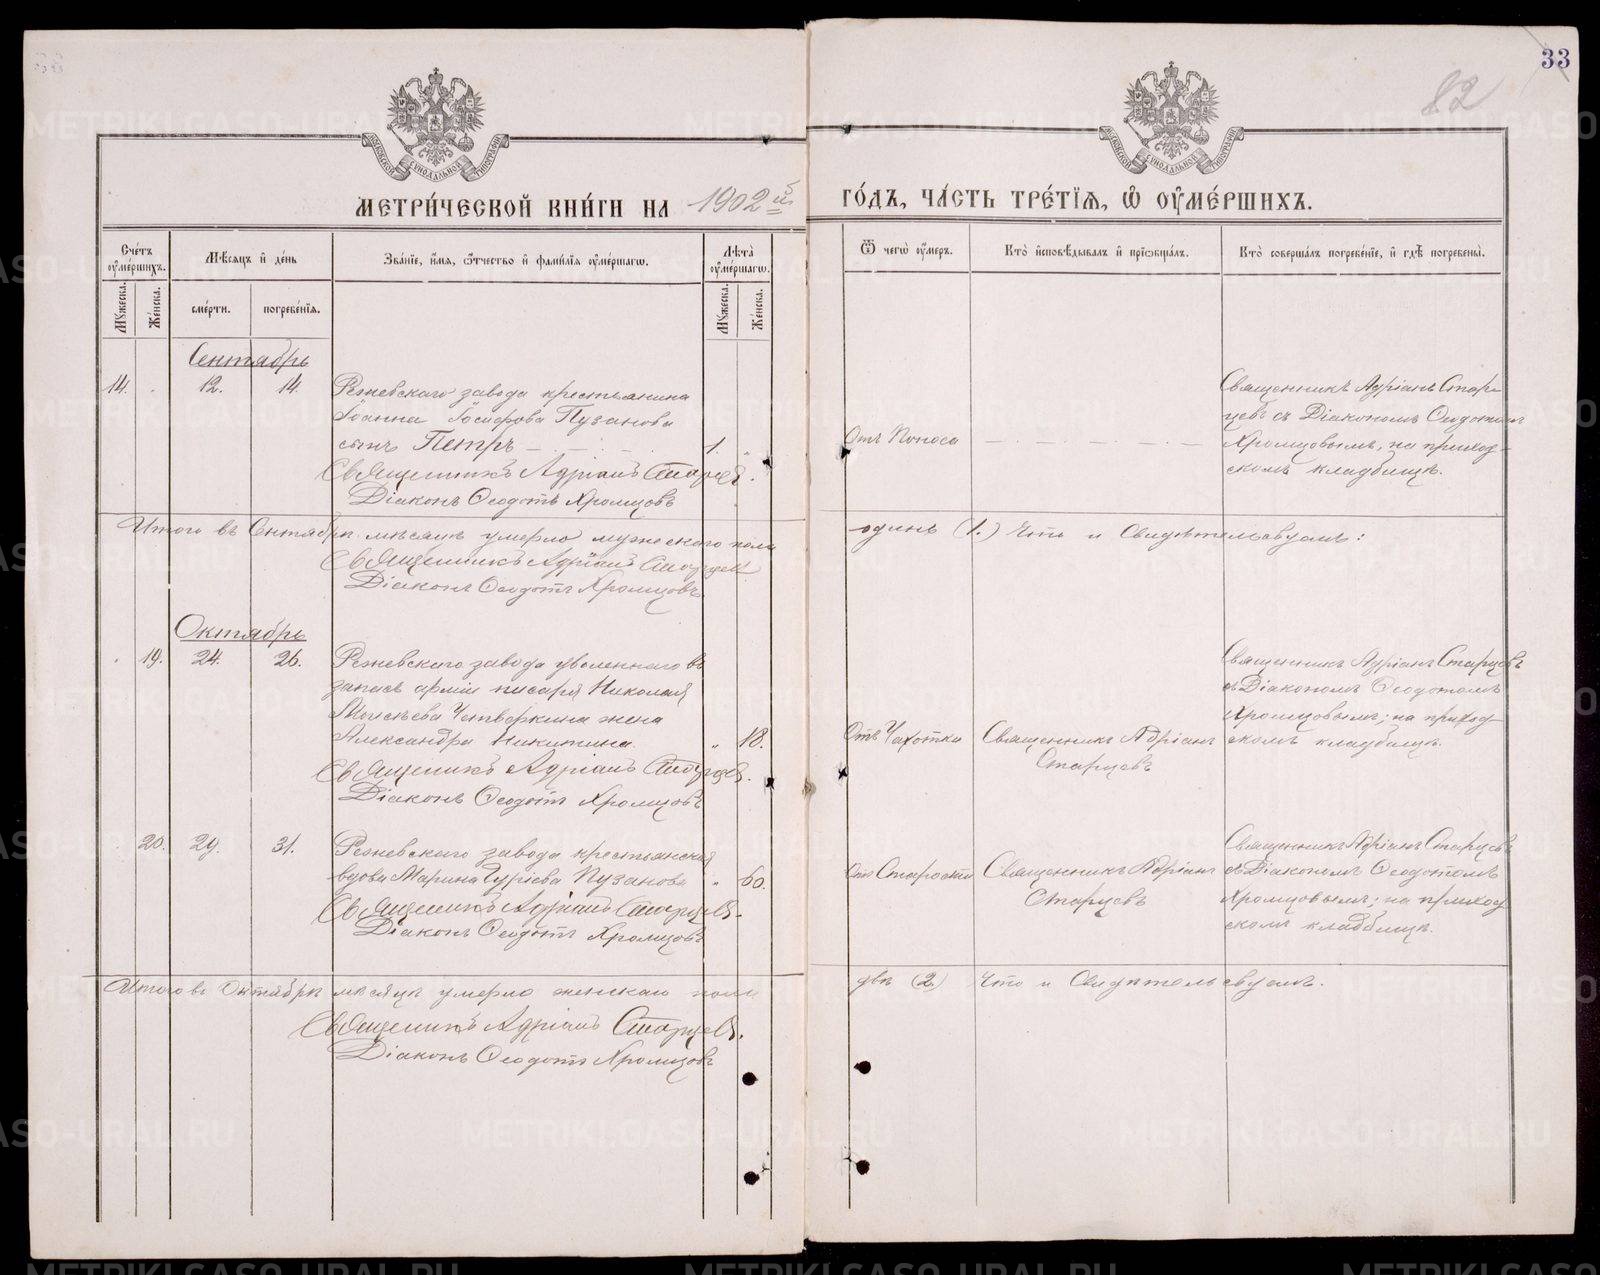 33
82
МЕТРИ́ЧЕСКОЙ КНИ́ГИ НА 1902й
ГО́ДЪ, ЧА́СТЬ ТРЕ́ТЇѦ, Ѡ ОУМЕ́РШИХЪ.
Сче́тъ оуме́ршихъ.
Мѣ́сяцъ и҆ де́нь
Зва́нїе, и҆́мѧ, ѻ҆́тчество и҆ фами́лїѧ оуме́ршагѡ.
Лѣ́та оуме́ршагѡ.
Ѿ чегѡ̀ оу҆́меръ.
Кто̀ и҆сповѣ́дывалъ и҆ прїѡбща́лъ.
Кто̀ соверша́лъ погребе́нїе, и҆ гдѣ̀ погребены̀.
Мꙋ́жеска.
Же́нска.
сме́рти.
погребе́нїѧ.
Мꙋ́жеска.
Же́нска.
Сентябрь
14. 12. 14. Режевскаго завода крестьянина
Іоанна Іосифова Пузанова
сынъ Петръ 1.
Священникъ Адріанъ Старцевъ.
Діаконъ Ѳеодотъ Хромцовъ
Отъ Поноса
Священникъ Адріанъ Стар-
цевъ съ Діакономъ Ѳеодотомъ
Хромцовымъ, на приход-
скомъ кладбищѣ.
Итого въ Сентябрѣ мѣсяцѣ умерло мужескаго пола
одинъ (1.) Что и Свидѣтельствуемъ:
Священникъ Адріанъ Старцевъ
Діаконъ Ѳеодотъ Хромцовъ
Октябрь
19. 24. 26. Режевскаго завода уволеннаго въ
запасъ арміи писаря Николая
Моисѣева Четверкина жена
Александра Никитина 18.
Священникъ Адріанъ Старцевъ.
Діаконъ Ѳеодотъ Хромцовъ
Отъ Чахотки
Священникъ Адріанъ
Старцевъ
Священникъ Адріанъ Старцевъ
съ Діакономъ Ѳеодотомъ
Хромцовымъ; на приход-
скомъ кладбищѣ.
20. 29. 31. Режевскаго завода крестьянская
вдова Марина Гуріева Пузанова 60.
Священникъ Адріанъ Старцевъ.
Діаконъ Ѳеодотъ Хромцовъ
Отъ Старости
Священникъ Адріанъ
Старцевъ
Священникъ Адріанъ Старцевъ
съ Діакономъ Ѳеодотомъ
Хромцовымъ; на приход
скомъ кладбищѣ.
Итого въ Октябрѣ мѣсяцѣ умерло женскаго пола
двѣ (2) Что и Свидѣтельствуемъ.
Священникъ Адріанъ Старцевъ.
Діаконъ Ѳеодотъ Хромцовъ
METRIKI.GASO-URAL.RU